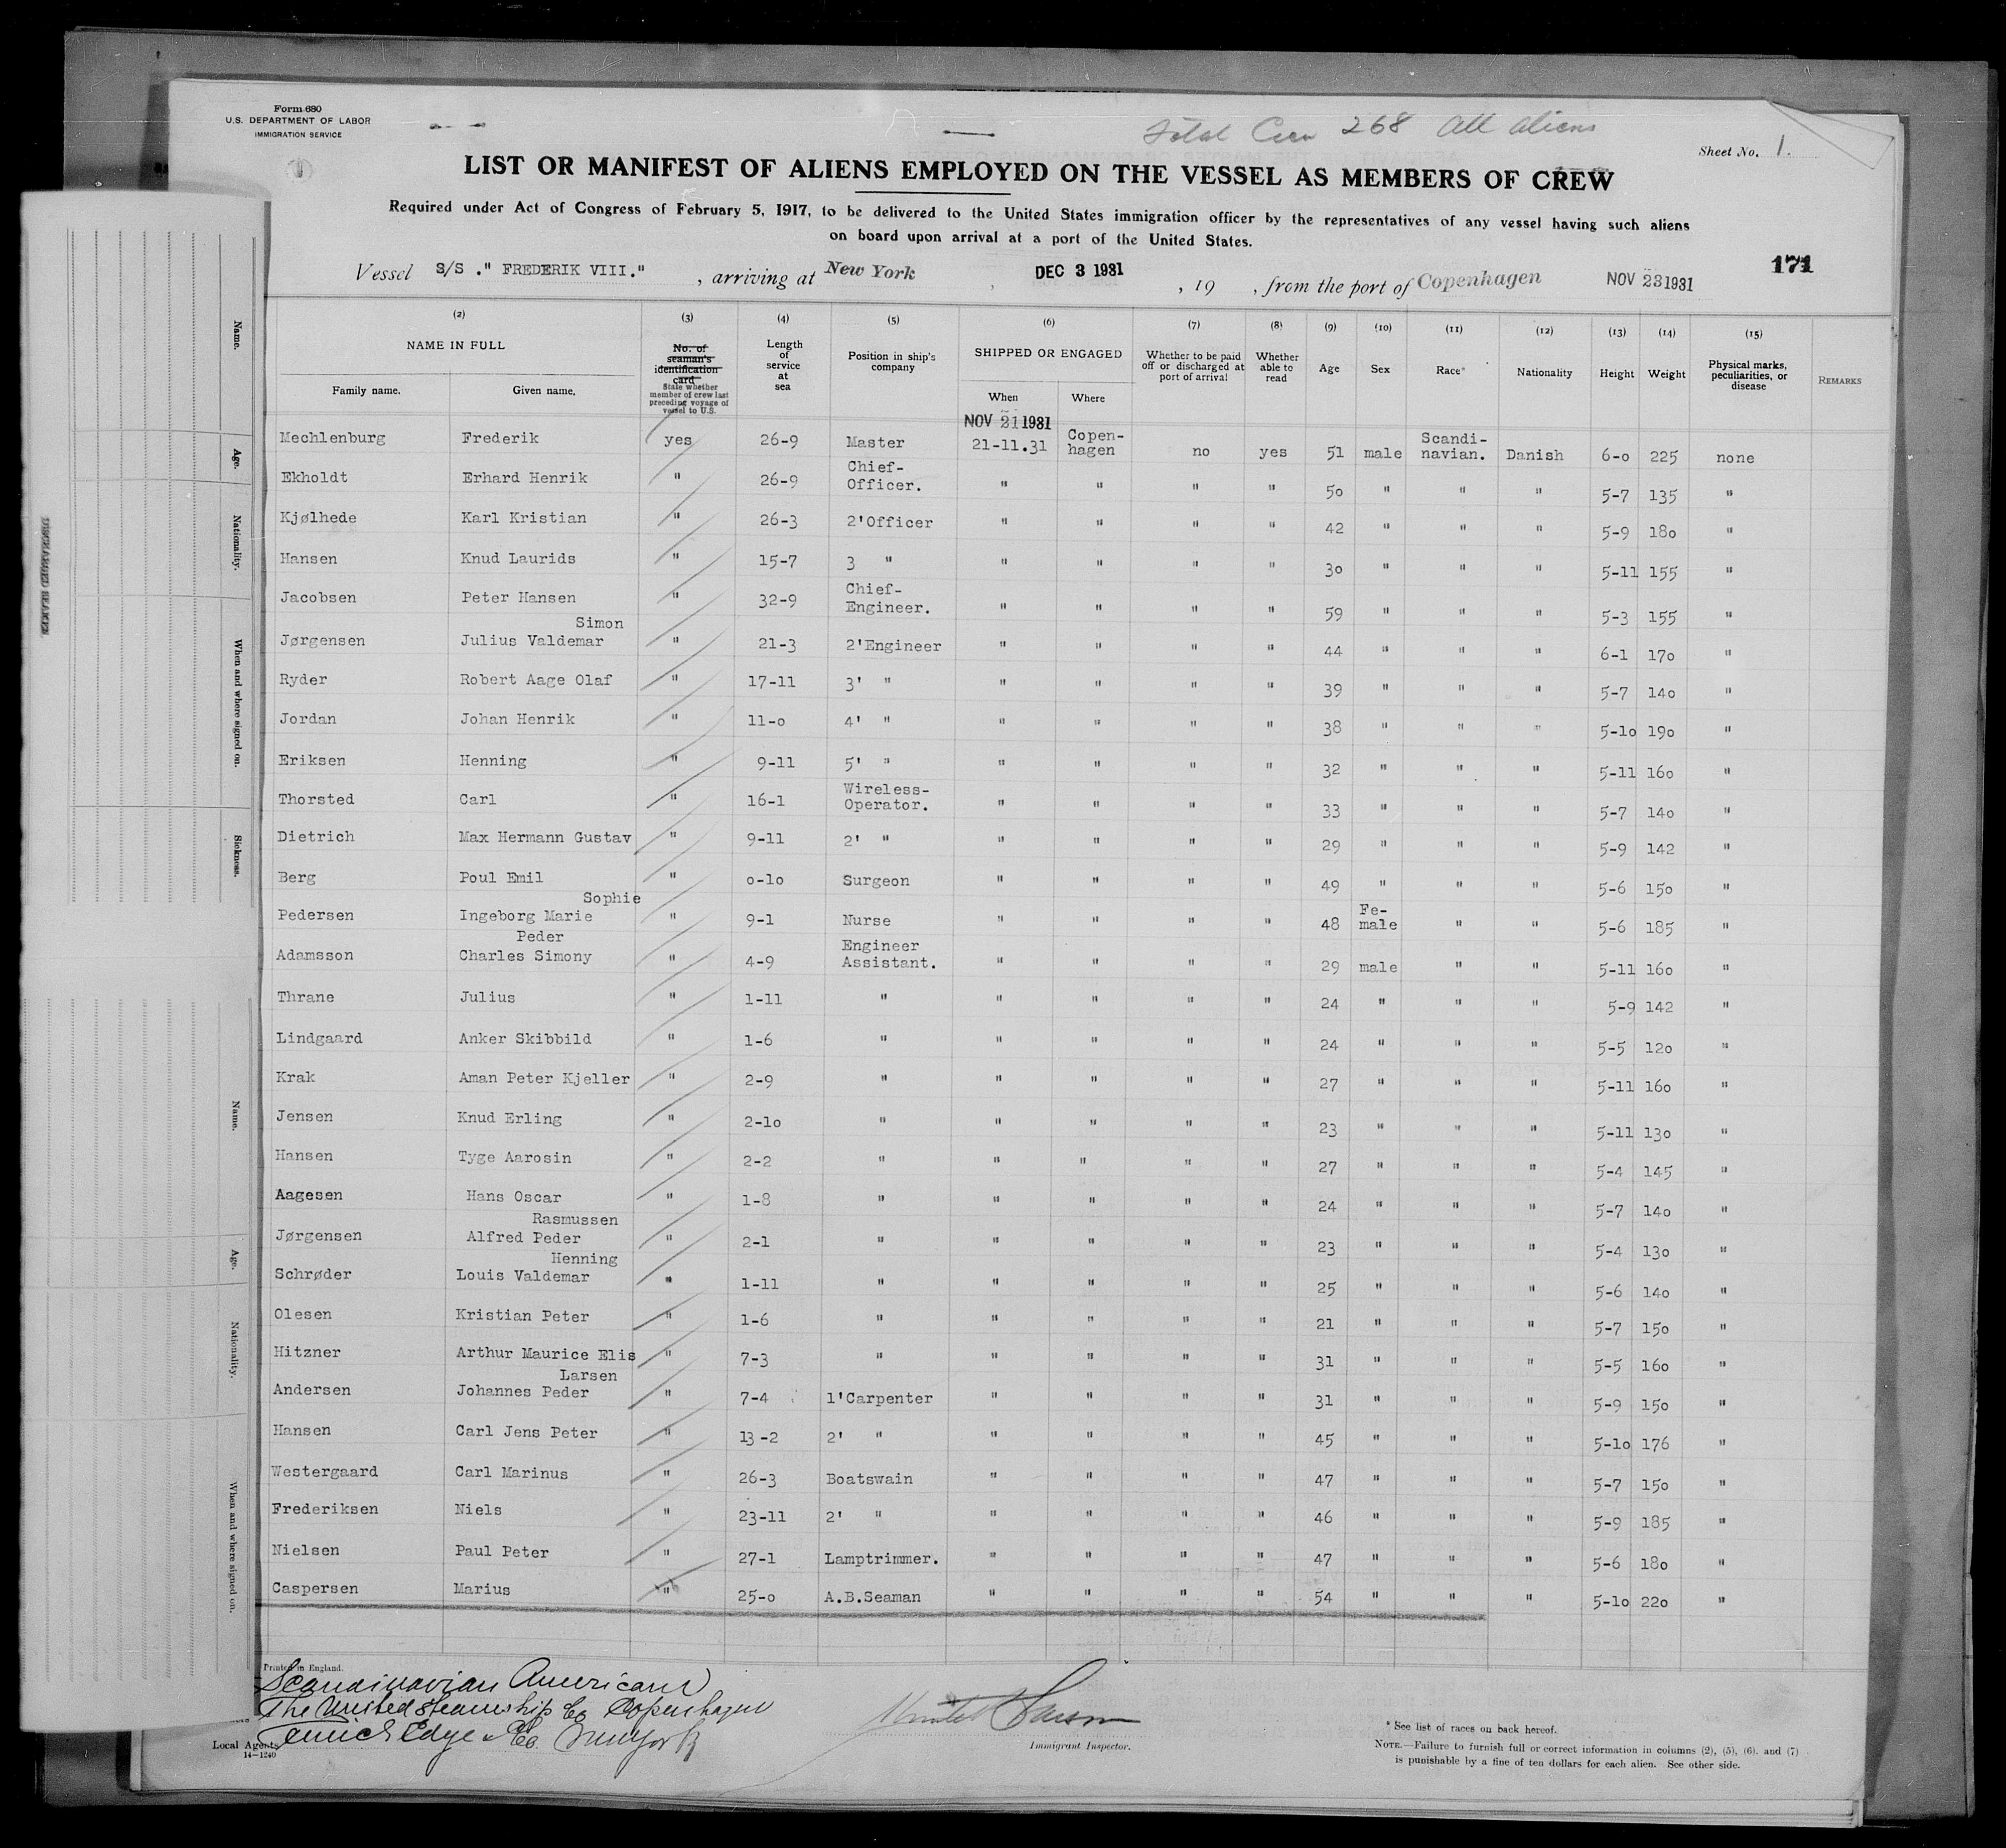 Form 680
U.S. DEPARTMENT OF LABOR
IMMIGRATION SERVICE
Total Crew 268 All aliens
Sheet No. 1.
LIST OR MANIFEST OF ALIENS EMPLOYED ON THE VESSEL AS MEMBERS OF CREW
Required under Act of Congress of February 5, 1917, to be delivered to the United States immigration officer by the representatives of any vessel having such aliens
on board upon arrival at a port of the United States.
171
Vessel S/S ." FREDERIK VIII." , arriving at New York DEC 3 1931 , 19 , from the port of Copenhagen NOV 23 1931
(2) (3) (4) (5) (6) (7) (8) (9) (10) (11) (12) (13) (14) (15)
NAME IN FULL
Family name. Given name.
No. of seaman's identification card
State whether member of crew last preceding voyage of vessel to U.S.
Length of service at sea
Position in ship's company
SHIPPED OR ENGAGED
When Where
Whether to be paid off or discharged at port of arrival
Whether able to read
Age Sex Race* Nationality Height Weight
Physical marks, peculiarities, or disease
REMARKS
NOV 21 1931
Mechlenburg Frederik yes 26-9 Master 21-11.31 Copen-hagen no yes 51 male Scandi-navian. Danish 6-0 225 none
Ekholdt Erhard Henrik " 26-9 Chief-Officer. " " " " 50 " " " 5-7 135 "
Kjølhede Karl Kristian " 26-3 2'Officer " " " " 42 " " " 5-9 180 "
Hansen Knud Laurids " 15-7 3 " " " " " 30 " " " 5-11 155 "
Jacobsen Peter Hansen " 32-9 Chief-Engineer. " " " " 59 " " " 5-3 155 "
Jørgensen Julius Valdemar Simon " 21-3 2'Engineer " " " " 44 " " " 6-1 170 "
Ryder Robert Aage Olaf " 17-11 3' " " " " " 39 " " " 5-7 140 "
Jordan Johan Henrik " 11-0 4' " " " " " 38 " " " 5-10 190 "
Eriksen Henning " 9-11 5' " " " " " 32 " " " 5-11 160 "
Thorsted Carl " 16-1 Wireless-Operator. " " " " 33 " " " 5-7 140 "
Dietrich Max Hermann Gustav " 9-11 2' " " " " " 29 " " " 5-9 142 "
Berg Poul Emil " 0-10 Surgeon " " " " 49 " " " 5-6 150 "
Pedersen Ingeborg Marie Sophie " 9-1 Nurse " " " " 48 Fe-male " " 5-6 185 "
Adamsson Charles Simony Peder " 4-9 Engineer Assistant. " " " " 29 male " " 5-11 160 "
Thrane Julius " 1-11 " " " " " 24 " " " 5-9 142 "
Lindgaard Anker Skibbild " 1-6 " " " " " 24 " " " 5-5 120 "
Krak Aman Peter Kjeller " 2-9 " " " " " 27 " " " 5-11 160 "
Jensen Knud Erling " 2-10 " " " " " 23 " " " 5-11 130 "
Hansen Tyge Aarosin " 2-2 " " " " " 27 " " " 5-4 145 "
Aagesen Hans Oscar " 1-8 " " " " " 24 " " " 5-7 140 "
Jørgensen Alfred Peder Rasmussen " 2-1 " " " " " 23 " " " 5-4 130 "
Schrøder Louis Valdemar Henning " 1-11 " " " " " 25 " " " 5-6 140 "
Olesen Kristian Peter " 1-6 " " " " " 21 " " " 5-7 150 "
Hitzner Arthur Maurice Elis " 7-3 " " " " " 31 " " " 5-5 160 "
Andersen Johannes Peder Larsen " 7-4 1'Carpenter " " " " 31 " " " 5-9 150 "
Hansen Carl Jens Peter " 13-2 2' " " " " " 45 " " " 5-10 176 "
Westergaard Carl Marinus " 26-3 Boatswain " " " " 47 " " " 5-7 150 "
Frederiksen Niels " 23-11 2' " " " " " 46 " " " 5-9 185 "
Nielsen Paul Peter " 27-1 Lamptrimmer. " " " " 47 " " " 5-6 180 "
Caspersen Marius " 25-0 A.B.Seaman " " " " 54 " " " 5-10 220 "
Printed in England.
Scandinavian American
The United Steamship Co Copenhagen
Edye & Co. New York
Local Agents
14-1240
Immigrant Inspector.
* See list of races on back hereof.
NOTE.—Failure to furnish full or correct information in columns (2), (5), (6), and (7)
is punishable by a fine of ten dollars for each alien. See other side.
Name.
Age.
Nationality.
When and where signed on.
Sickness.
Name.
Age.
Nationality.
When and where signed on.